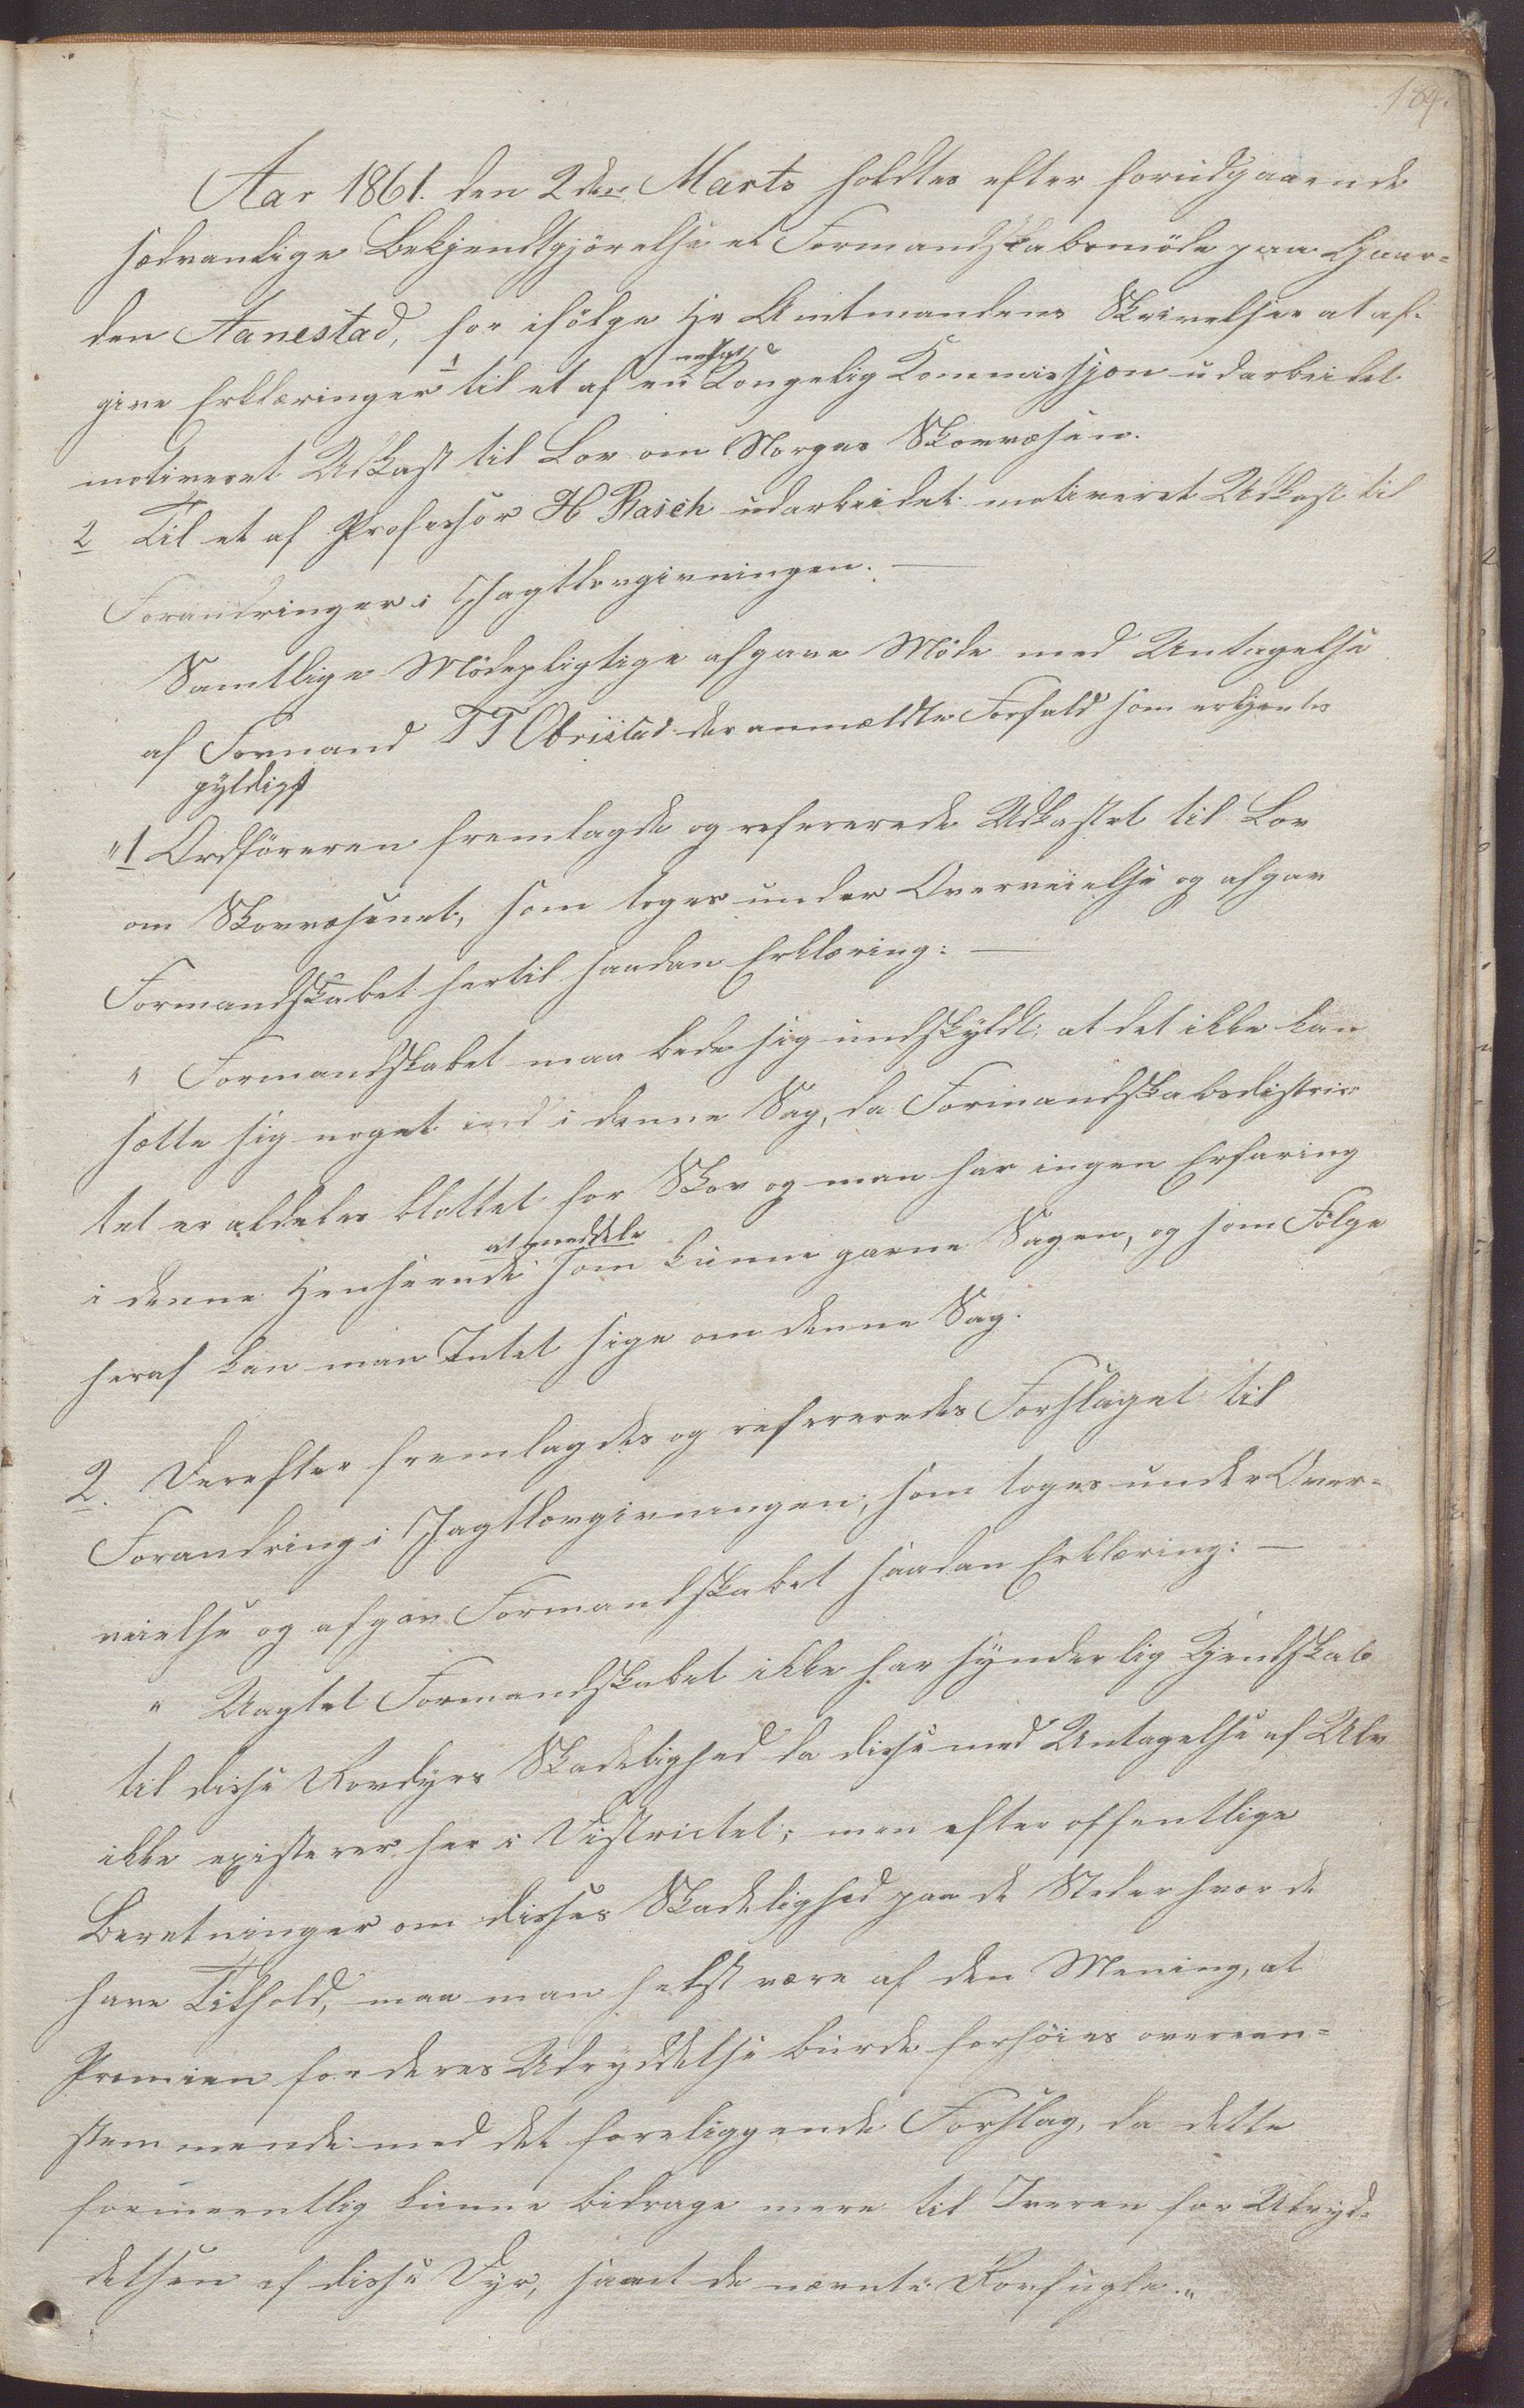 184.
Aar 1861. den 2den Marts holdtes efter forudgaaende
sedvanlige Bekjendtgjörelse et Formandskabsmöde paa Gaar-
den Aanestad, for ifölge Hr Amtmandens Skrivelser at af-
give Erklæringer 1 til et af en nedsat Kongelig Kommissjon udarbeidet
motiveret Udkast til Lov om Norges Skovvæsen.
2 Til et af Professor H Rasch udarbeidet motiveret Udkast til
Forandringer i Jagtlovgivningen. —
Samtlige Mödepligtige afgave Möde med Untagelse
af Formand T T Obristad der anmældte Forfald som erkjentes
gyldigt
"1 Ordföreren fremlagde og refererede Udkastet til Lov
om Skovvæsenet, som toges under Overveielse og afgav
Formandskabet hertil saadan Erklæring: —
" Formandskabet maa bede sig undskyldt; at det ikke kan
sætte sig noget ind i denne Sag, da Formandskabsdistric-
tet er aldeles blottet for Skov og man har ingen Erfaring
i denne Henseende at meddele som kunne gavne Sagen, og som Fölge
heraf kan man Intet sige om denne Sag.
2. Derefter fremlagdes og refereredes Forslaget til
Forandring i Jagtlovgivningen, som toges under Over-
veielse og afgav Formandskabet saadan Erklæring: —
" Uagtet Formandskabet ikke har synderlig Kjendskab
til disse Rovdyrs Skadelighed da disse med Untagelse af Ulv
ikke existerer her i Districtet; men efter offentlige
Beretninger om disses Skadelighed paa de Steder hvor de
have Tilhold, maa man helst være af den Mening, at
Premien for deres Udryddelse burde forhöies overeen-
stemmende med det foreliggende Forslag, da dette
formeentlig kunne bidrage mere til Iveren for Udryd-
delsen af disse Dyr, samt de nævnte Rovfugle."